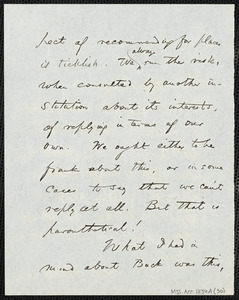 ject of recommending for places
is ticklish. We always run the risk,
when consulted by another in-
stitution about its interests,
of replying in terms of our
own. We ought either to be
frank about this, or in some
cases to say that we can't
reply at all. But that is
parenthetical!
What I had a
mind about Buck was this,
MSS. Acc. 1834A (30)